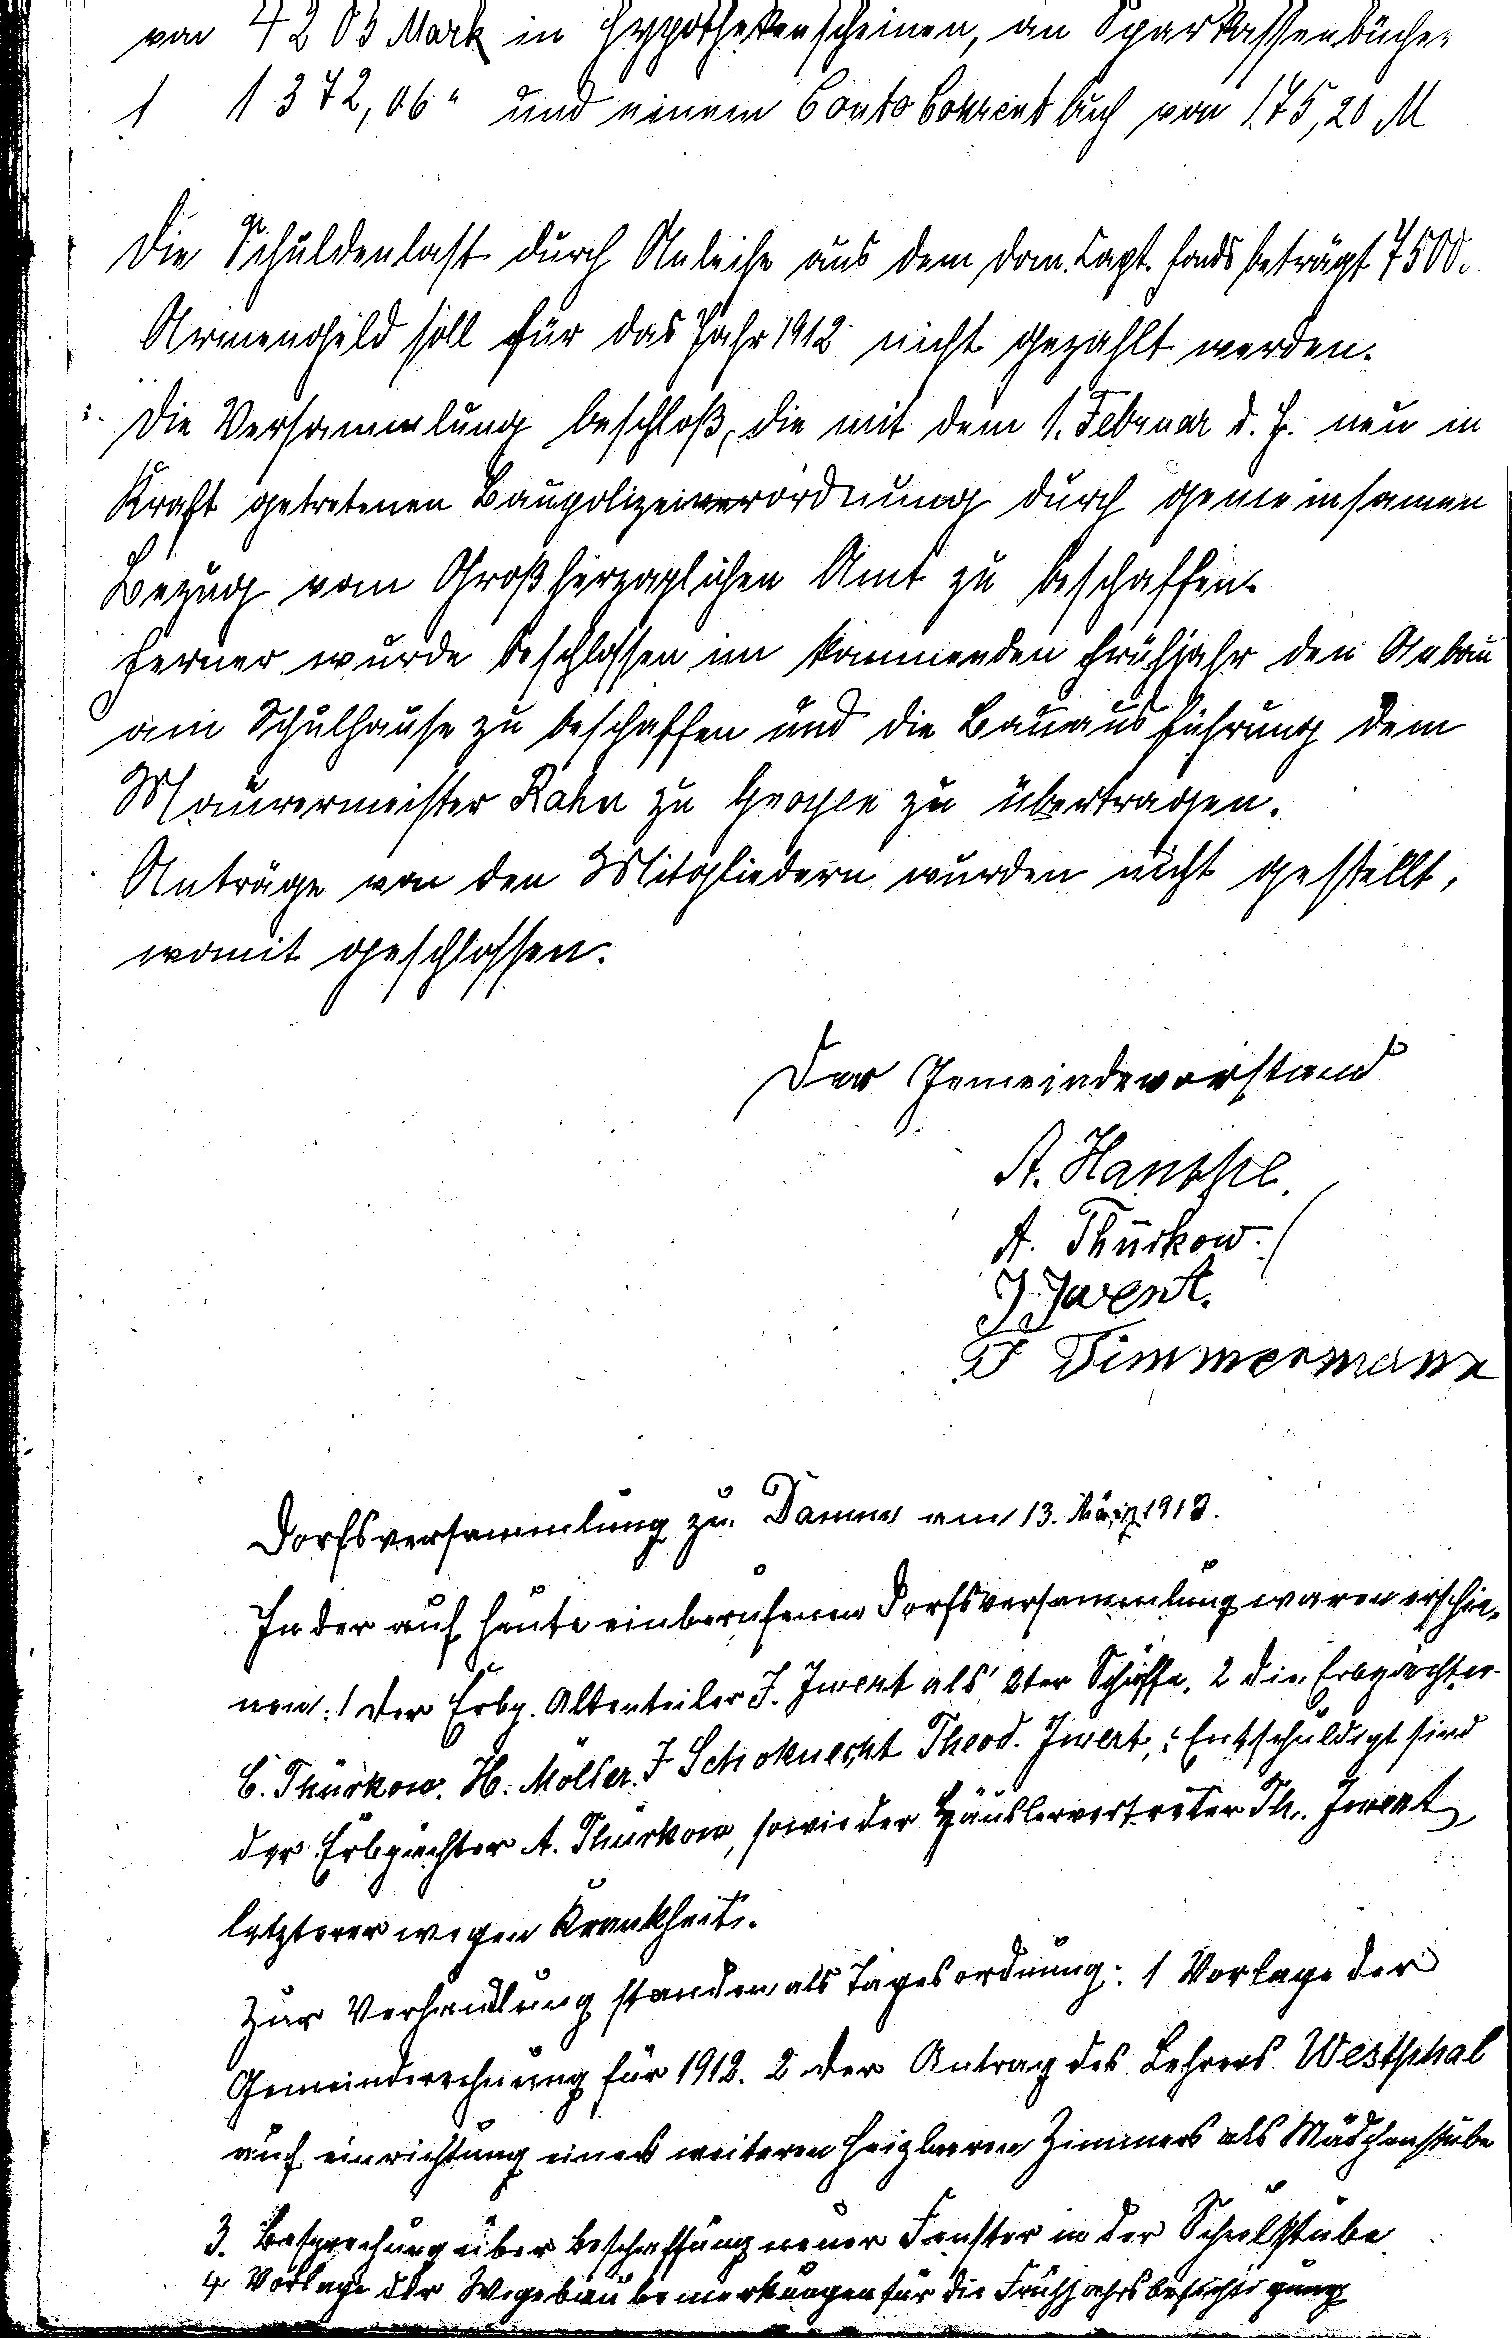 von 4203 Mark in Hypothekenscheinen, an Sparkassenbücher
1 1372,06 " und einem Conto Corrent buch von 175,20 M
Die Schuldenlast durch Anleihe aus dem Dom. Capt. fonds beträgt 7500.
Armengeld soll für das Jahr 1912 nicht gezahlt werden.
Die Versammlung beschloß, die mit dem 1. Februar d. J. neu in
Kraft getretenen Baupolizeiverordnung durch gemeinsamen
Bezug vom Großherzoglichen Amt zu beschaffen.
Ferner wurde beschlossen im kommenden Frühjahr den Anbau
am Schulhause zu beschaffen und die Bauausführung dem
Maurermeister Rahn zu zu übertragen.
Anträge von den Mitgliedern wurden nicht gestellt,
womit geschlossen.
Der Gemeindevorstand
A. Hansche.
A. Thürkow.
J. Jwert.
F Timmermann
Dorfsversammlung zu Damm am 13. März 1913.
In der auf heute einberufenen Dorfsversammlung waren erschie-
nen: 1 Der Erbp. Altenteiler J. Jwert als 2ter Schöffe, 2 die Erbpächter
C. Thürkow. H. Möller. J Schoknecht Theod. Jwert, : Entschuldigt sind
der Erbpächter A. Thürkow, sowie der Häuslervertreter Th. Jwert
letzterer wegen Krankheit.
Zur Verhandlung standen als Tagesordnung: 1 Vorlage der
Gemeinderechnung für 1912. 2 der Antrag des Lehrers Westphal
auf einrichtung eines weiteren heizbaren Zimmers als Mädchenstube
3. Besprechung über Beschaffung neuer Fenster in der Schulstube
4 Vorlage der Wegebau bemerkungen für die Frühjahrsbesichtigung